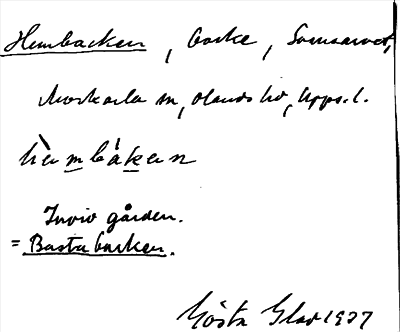 Hembacken, backe, Sommarvret,
Morkarla sn, Olands hd, Upps. l.
hèmbákən
Invid gården.
= Bastubacken.
Gösta Glad 1937